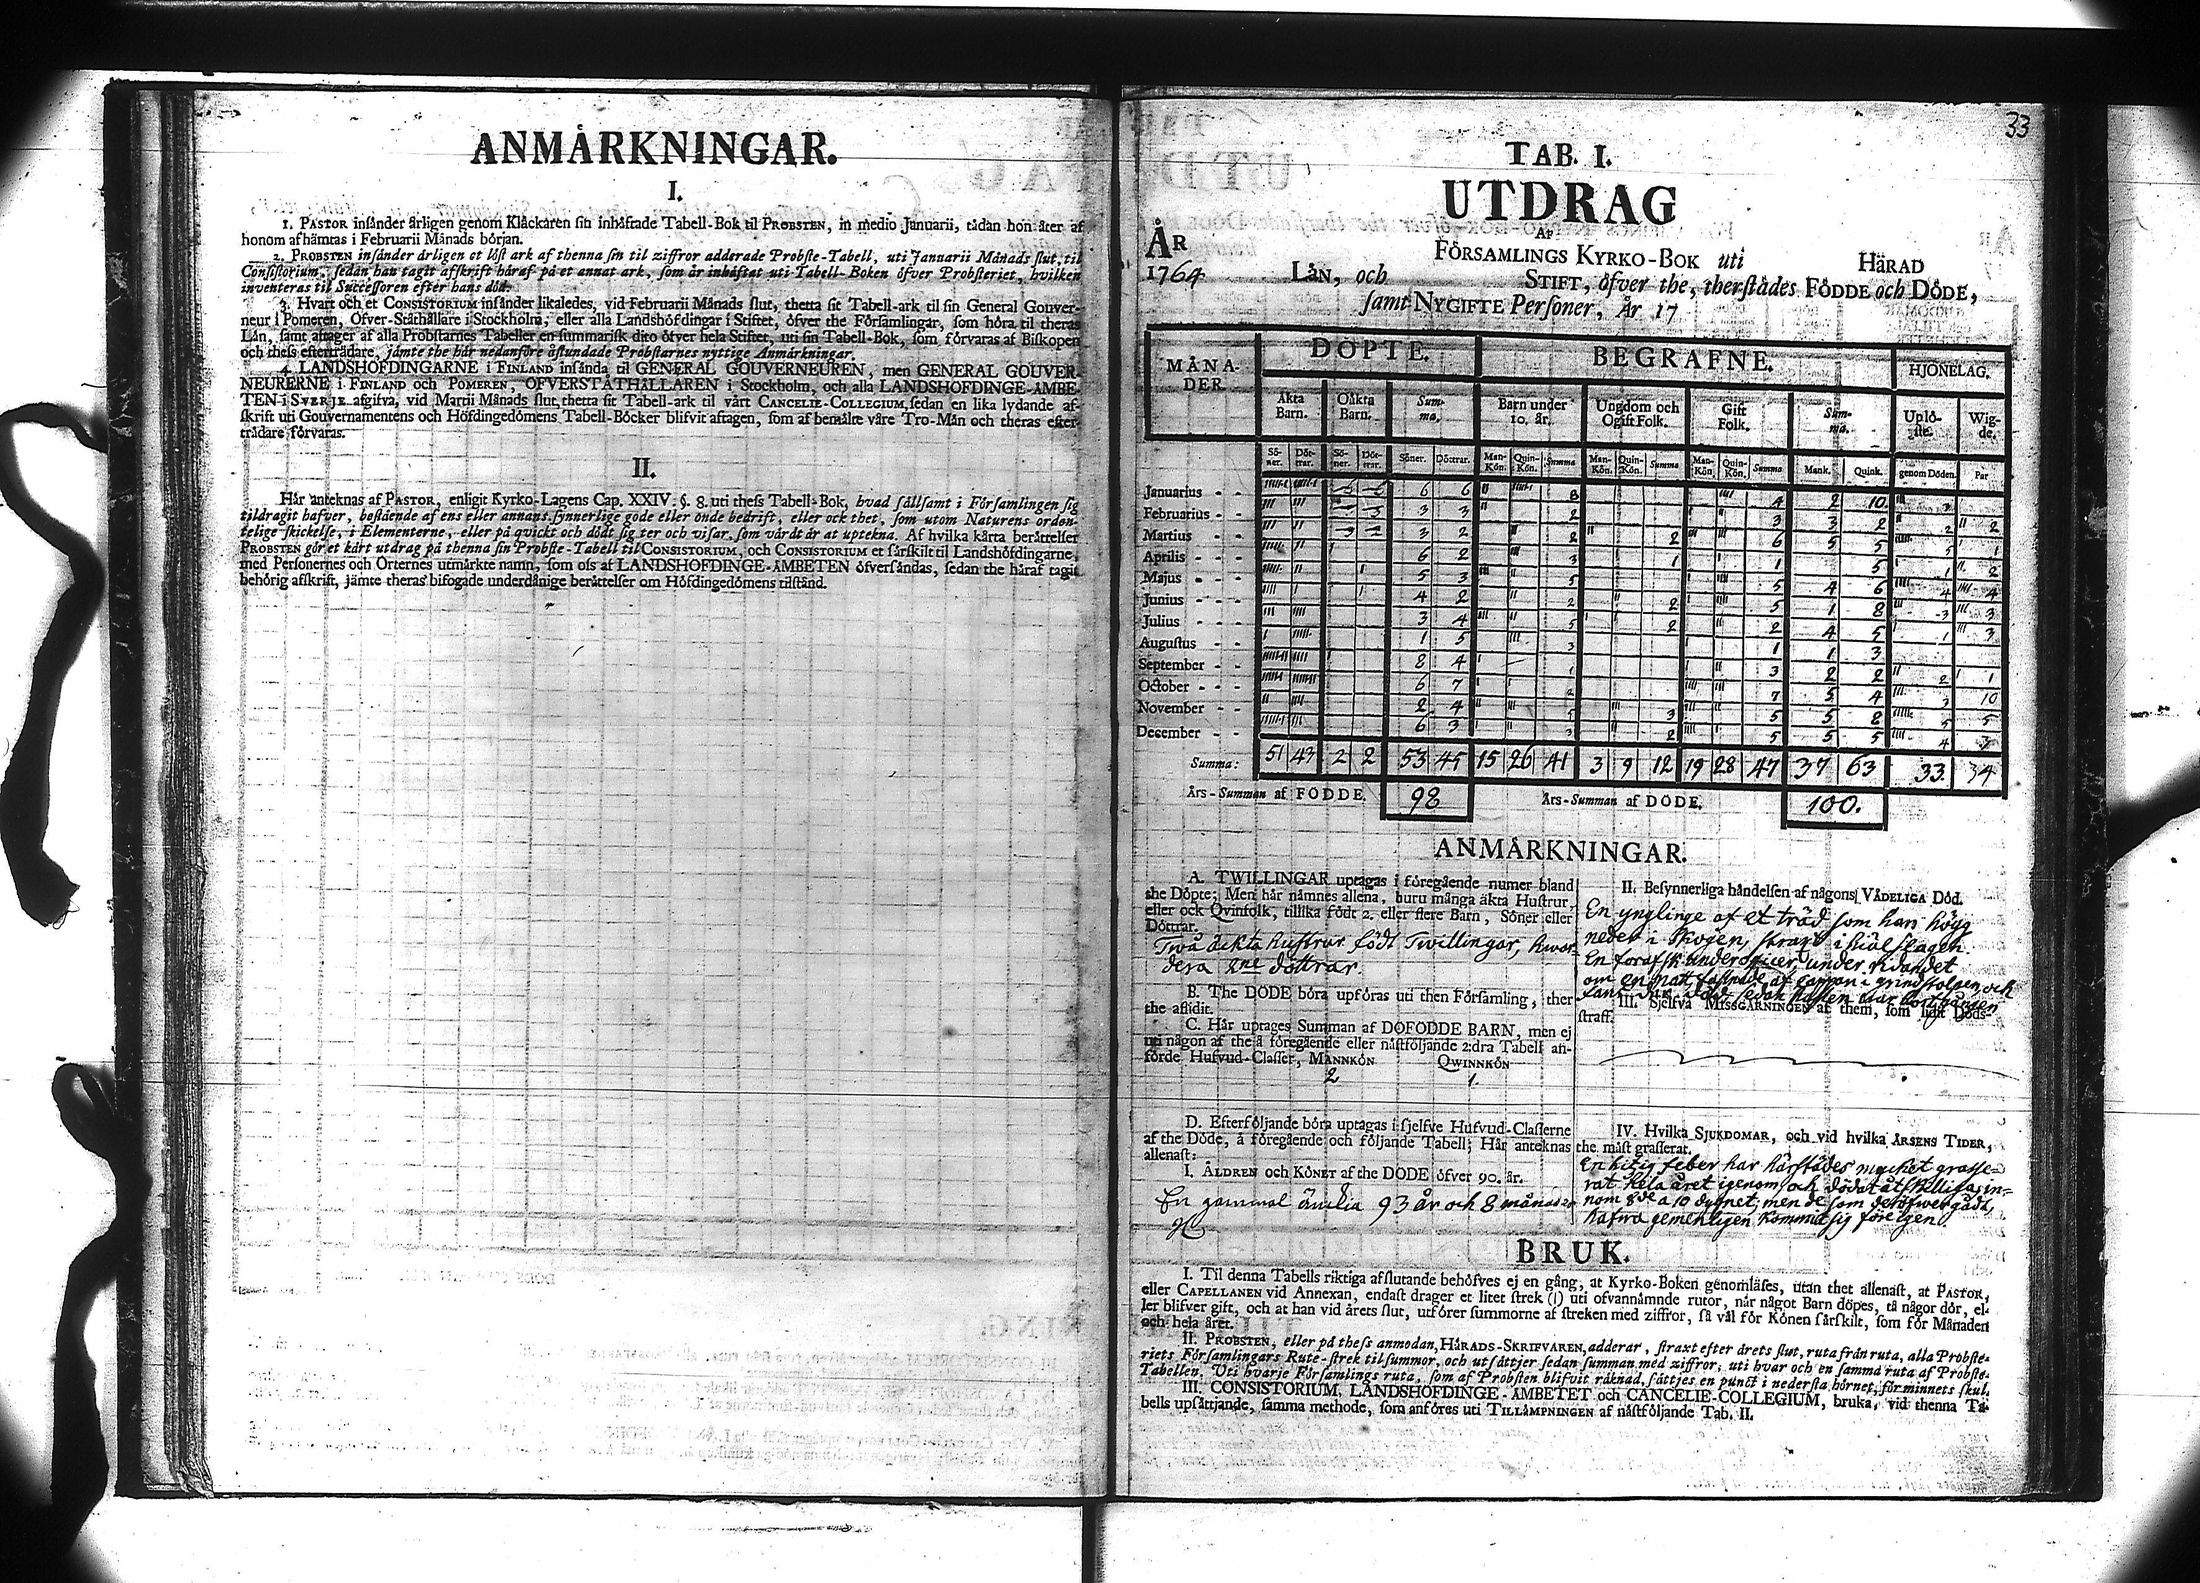 ANMÅRKNINGAR.
I.
1. PASTOR insånder årligen genom Klåckaren sin inhåftade Tabell-Bok til PROBSTEN, in medio Januarii, tådan hon åter af
honom afhåmtas i Februarii Månads början.
2. PROBSTEN insånder årligen et löst ark af thenna sin til ziffror adderade Probste-Tabell, uti Januarii Månads slut, til
Consistorium, sedan han tagit afskrift håraf på et annat ark, som år inhåftat uti Tabell-Boken öfver Probsteriet, hvilken
inventeras til Successoren efter hans död.
3. Hvart och et CONSISTORIUM insånder likaledes, vid Februarii Månads slut, thetta sit Tabell-ark til sin General Gouver-
neur i Pomeren, Öfver-Ståthållare i Stockholm, eller alla Landshöfdingar i Stiftet, öfver the Församlingar, som höra til theras
Lån, samt aftager af alla Probstarnes Tabeller en summarisk dito öfver hela Stiftet, uti sin Tabell-Bok, som förvaras af Biskopen
och thess efterträdare, jämte the hår nedanföre åstundade Probstarnes nyttige Anmårkningar.
4. LANDSHÖFDINGARNE i FINLAND insånda til GENERAL GOUVERNEUREN, men GENERAL GOUVER-
NEURERNE i FINLAND och POMEREN, ÖFVERSTÅTHÅLLAREN i Stockholm, och alla LANDSHÖFDINGE-ÅMBE-
TEN i SVERJE afgifva, vid Martii Månads slut, thetta sit Tabell-ark til vårt CANCELIE-COLLEGIUM, sedan en lika lydande af-
skrift uti Gouvernamentens och Höfdingedömens Tabell-Böcker blifvit aftagen, som af bemålte våre Tro-Mån och theras efter-
trådare förvaras.
II.
Hår anteknas af PASTOR, enligit Kyrko-Lagens Cap. XXIV. §. 8. uti thess Tabell-Bok, hvad sållsamt i Församlingen sig
tildragit hafver, bestående af ens eller annans synnerlige gode eller onde bedrift, eller ock thet, som utom Naturens orden-
telige skickelse, i Elementerne, eller på qvickt och dödt sig ter och visar, som vårdt år at uptekna. Af hvilka kårta beråttelser
PROBSTEN gör et kårt utdrag på thenna sin Probste-Tabell til CONSISTORIUM, och CONSISTORIUM et sårskilt til Landshöfdingarne,
med Personernes och Orternes utmårkte namn, som oss af LANDSHÖFDINGE-ÅMBETEN öfversåndas, sedan the håraf tagit
behörig afskrift, jämte theras bifogade underdånige beråttelser om Höfdingedömens tilstånd.
33
TAB. I.
UTDRAG
AF
FÖRSAMLINGS KYRKO-BOK uti HÄRAD
ÅR
1764 LÅN, och STIFT, öfver the, therstådes FÖDDE och DÖDE,
samt NYGIFTE Personer, År 17
MÅNA-DER. DÖPTE. BEGRAFNE. HJONELAG.
Åkta Barn. Oåkta Barn. Summa. Barn under 10. år. Ungdom och Ogift Folk. Gift Folk. Summa. Uplöste. Wigde.
Söner. Döttrar. Söner. Döttrar. Söner. Döttrar. Man-Kön. Quin-Kön. Summa Man-Kön. Quin-Kön. Summa Man-Kön. Quin-Kön. Summa Mank. Quink. genom Döden. Par
Januarius - - 6 6 8 4 2 10 3
Februarius - - 3 3 2 3 3 2 2 2
Martius - - 3 2 2 2 6 5 5 5 1
Aprilis - - 6 2 3 1 1 5 1 2
Majus - - 5 3 5 5 4 6 4 4
Junius - - 4 2 2 2 5 1 8 3 3
Julius - - 3 4 5 2 2 4 5 1 3
Augustus - - 1 5 3 1 1 3
September - - 8 4 1 3 2 2 2 1
October - - - 6 7 2 7 5 4 3 10
November - - 2 4 5 3 5 5 8 5 5
December - - 6 3 3 2 5 5 5 4 3
Summa: 51 43 2 2 53 45 15 26 41 3 9 12 19 28 47 37 63 33. 34
Års-Summan af FÖDDE. 98 Års-Summan af DÖDE. 100.
ANMÅRKNINGAR.
A. TWILLINGAR uptagas i föregående numer bland
the Döpte; Men hår nåmnes allena, huru många åkta Hustrur,
eller ock Qvinfolk, tillika födt 2. eller flere Barn, Söner eller
Döttrar.
Twå äckta hustrur födt Twillingar, hwar-
dera 2ne döttrar.
B. The DÖDE böra upföras uti then Församling, ther
the aflidit.
C. Hår uptages Summan af DÖFÖDDE BARN, men ej
uti någon af the å föregående eller nåstföljande 2:dra Tabell an-
förde Hufvud-Classer, MANNKÖN QWINNKÖN
2 1.
D. Efterföljande böra uptagas i sjelfve Hufvud-Classerne
af the Döde, å föregående och följande Tabell; Hår anteknas
allenast:
I. ÅLDREN och KÖNET af the DÖDE öfver 90. år.
En gammal änckia 93 år och 8 månader
II. Besynnerliga håndelsen af någons VÅDELIGA DÖD.
En ynglinge af et träd som han högg
neder i skogen, strax ihiäl slagen.
En under ridandet
om en natt af
III. Sjelfva MISSGÅRNINGEN af them, som lidit Döds-
straff.
IV. Hvilka SJUKDOMAR, och vid hvilka ÅRSENS TIDER,
the måst grasserat.
En hitig feber har härstädes mycket grasse-
rat hela året igenom, och dödat åtskilliga in-
nom 8de a 10 dygnet, men de som
hafwa gemenligen kommit sig före igen
BRUK.
I. Til denna Tabells riktiga afslutande behöfves ej en gång, at Kyrko-Boken genomläses, utan thet allenast, at PASTOR,
eller CAPELLANEN vid Annexan, endast drager et litet strek (1) uti ofvannåmnde rutor, når något Barn döpes, tå någor dör, el-
ler blifver gift, och at han vid årets slut, utförer summorne af streken med ziffror, så vål för Könen sårskilt, som för Månaden
och hela året.
II. PROBSTEN, eller på thess anmodan, HÅRADS-SKRIFVAREN, adderar, straxt efter årets slut, ruta från ruta, alla Probste-
riets Församlingars Rute-strek til summor, och utsåttjer sedan summan med ziffror, uti hvar och en samma ruta af Probste-
Tabellen. Uti hvarje Församlings ruta, som af Probsten blifvit råknad, såttjes en punct i nedersta hörnet, för minnets skul.
III. CONSISTORIUM, LANDSHÖFDINGE-ÅMBETET och CANCELIE-COLLEGIUM, bruka, vid thenna Ta-
bells upsåttjande, samma methode, som anföres uti TILLÅMPNINGEN af nåstföljande Tab. II.